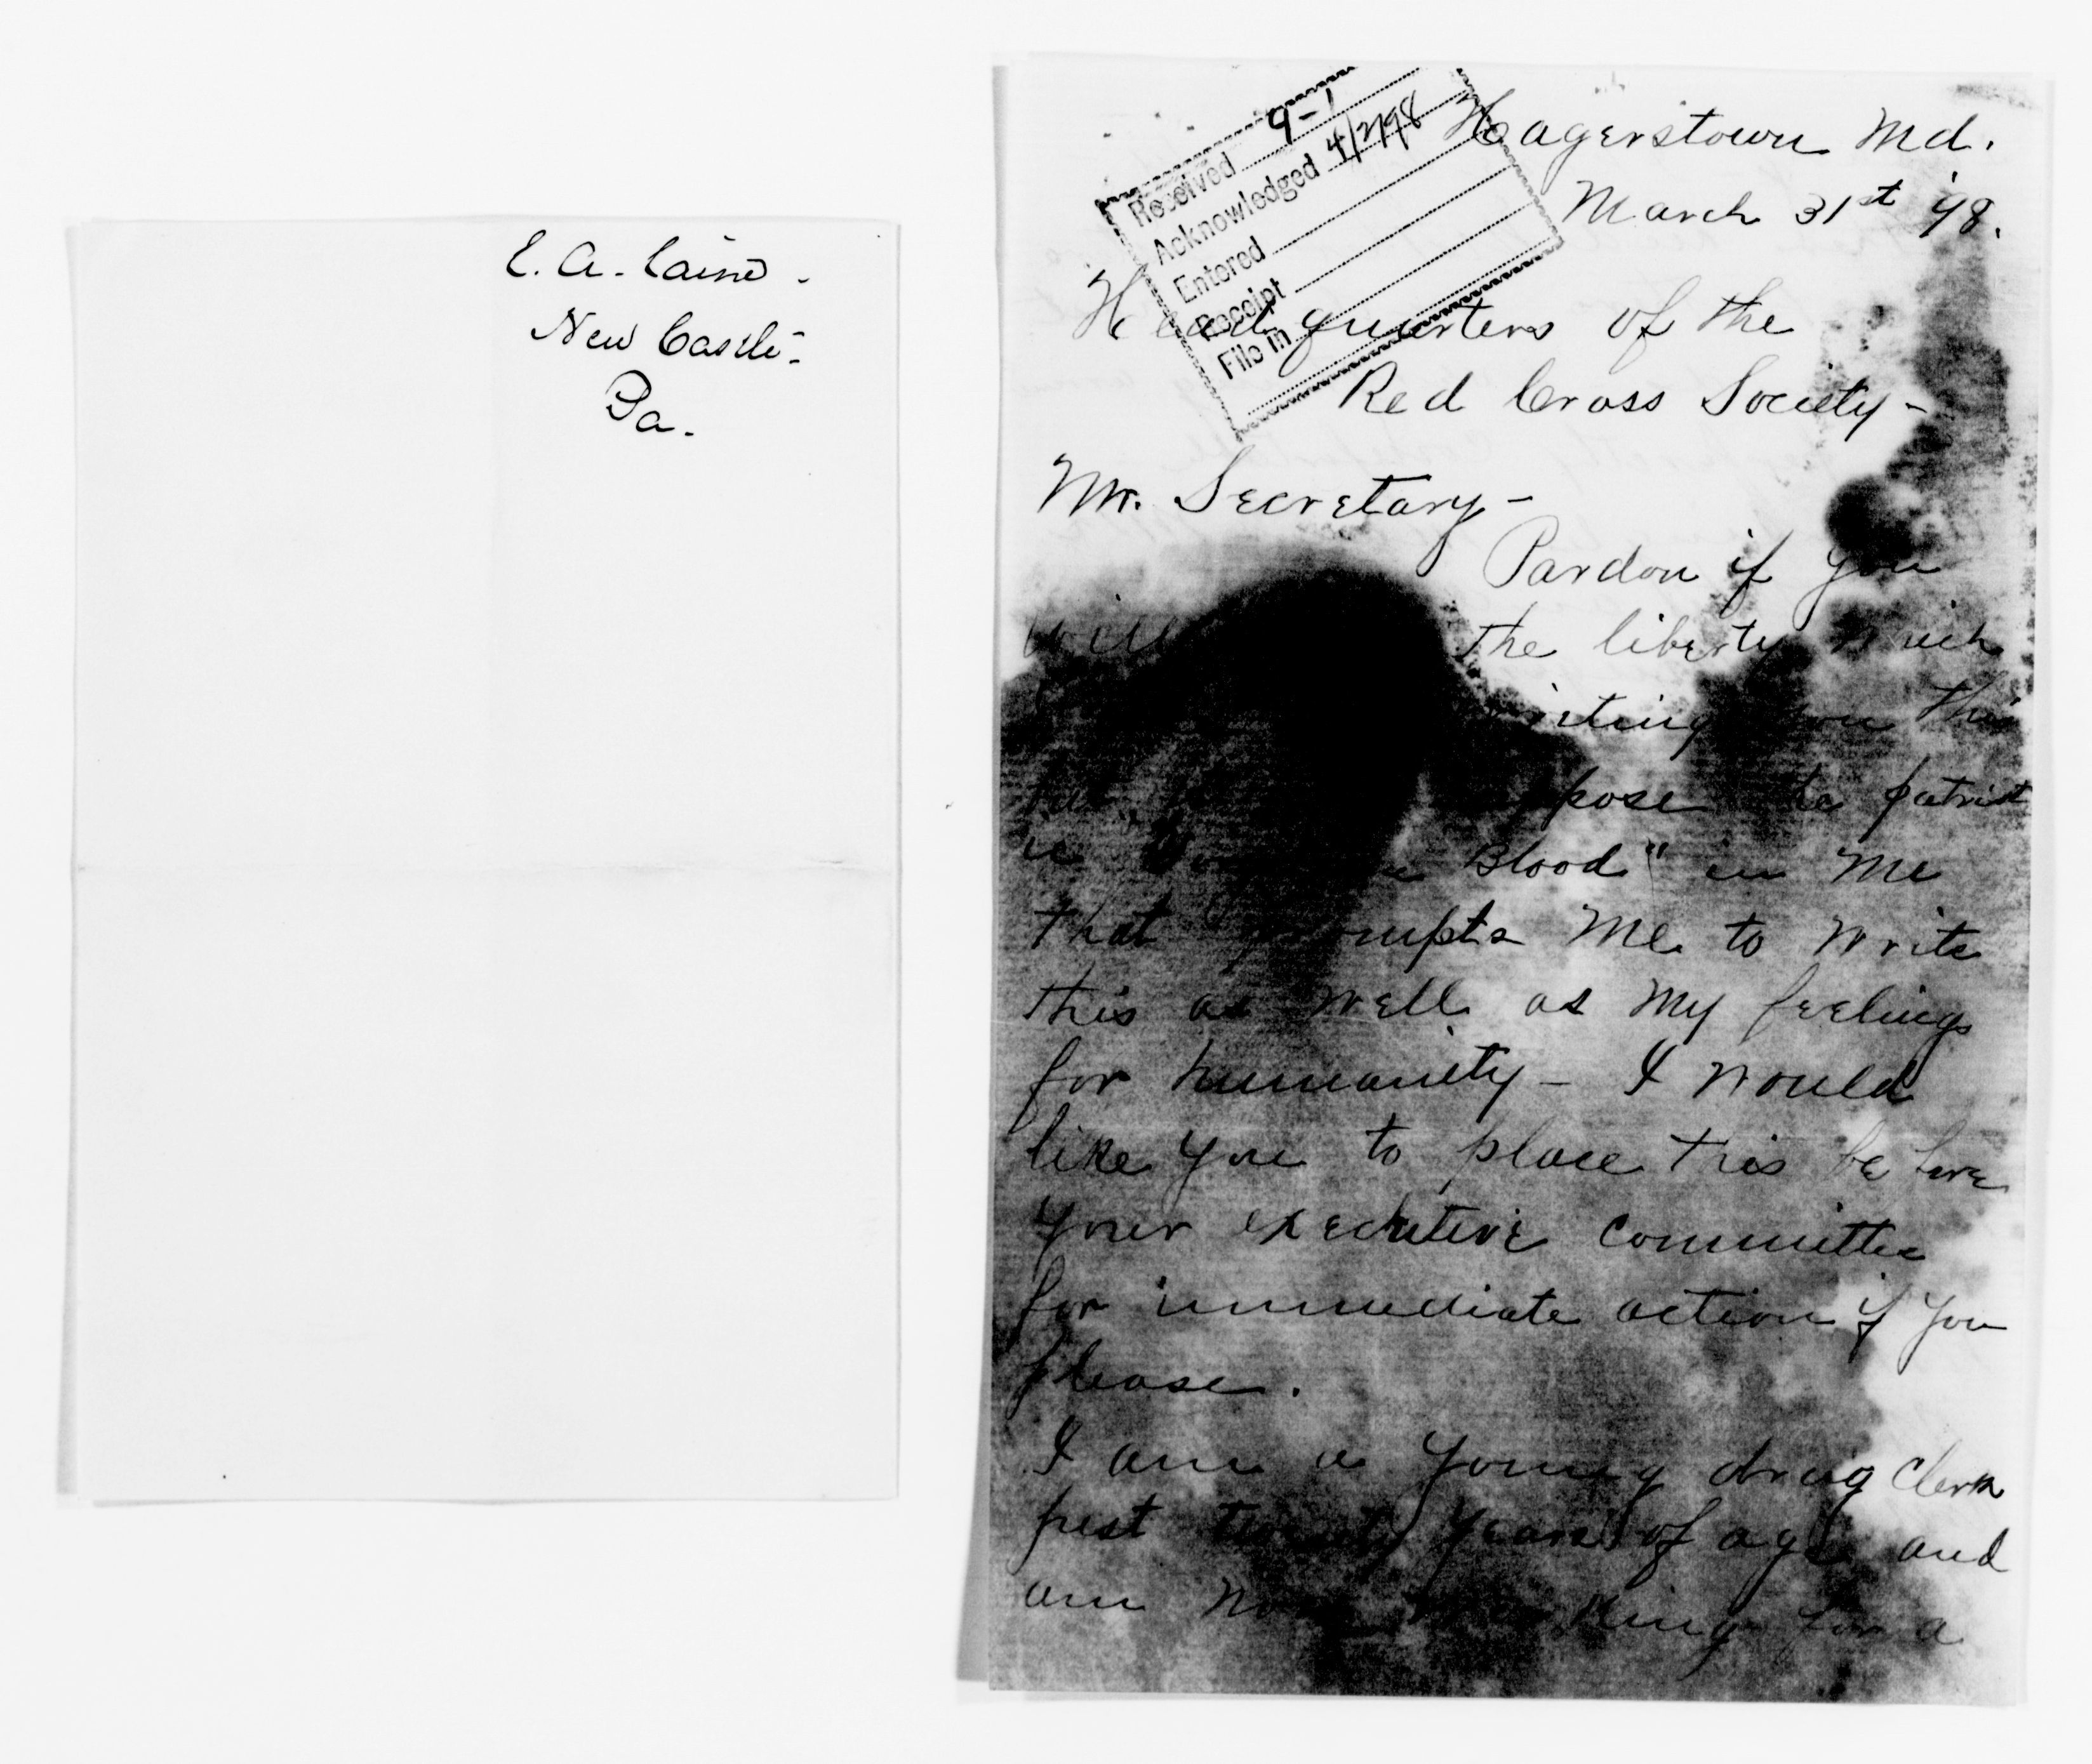 E. A. Caine.
New Castle-
Pa.
Received 9-1
Acknowledged 4/2/98
Entered
Receipt
File in
Hagerstown Md.
March 31st '98.
Headquarters of the
Red Cross Society-
Mr. Secretary-
Pardon if you
will the liberty which
this
patriot
ic Blood" in me
that prompts me to write
this as well as my feelings
for humanity - I would
like you to place this before
your executive committee
for immediate action if you
please.
I am a young drug clerk
past twenty years of age and
am now working for a